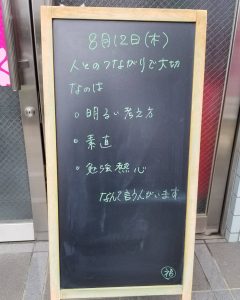 8月12日(木)
人とのつながりで大切
なのは
○ 明るい考え方
○ 素直
○ 勉強熱心
なんて言う人がいます